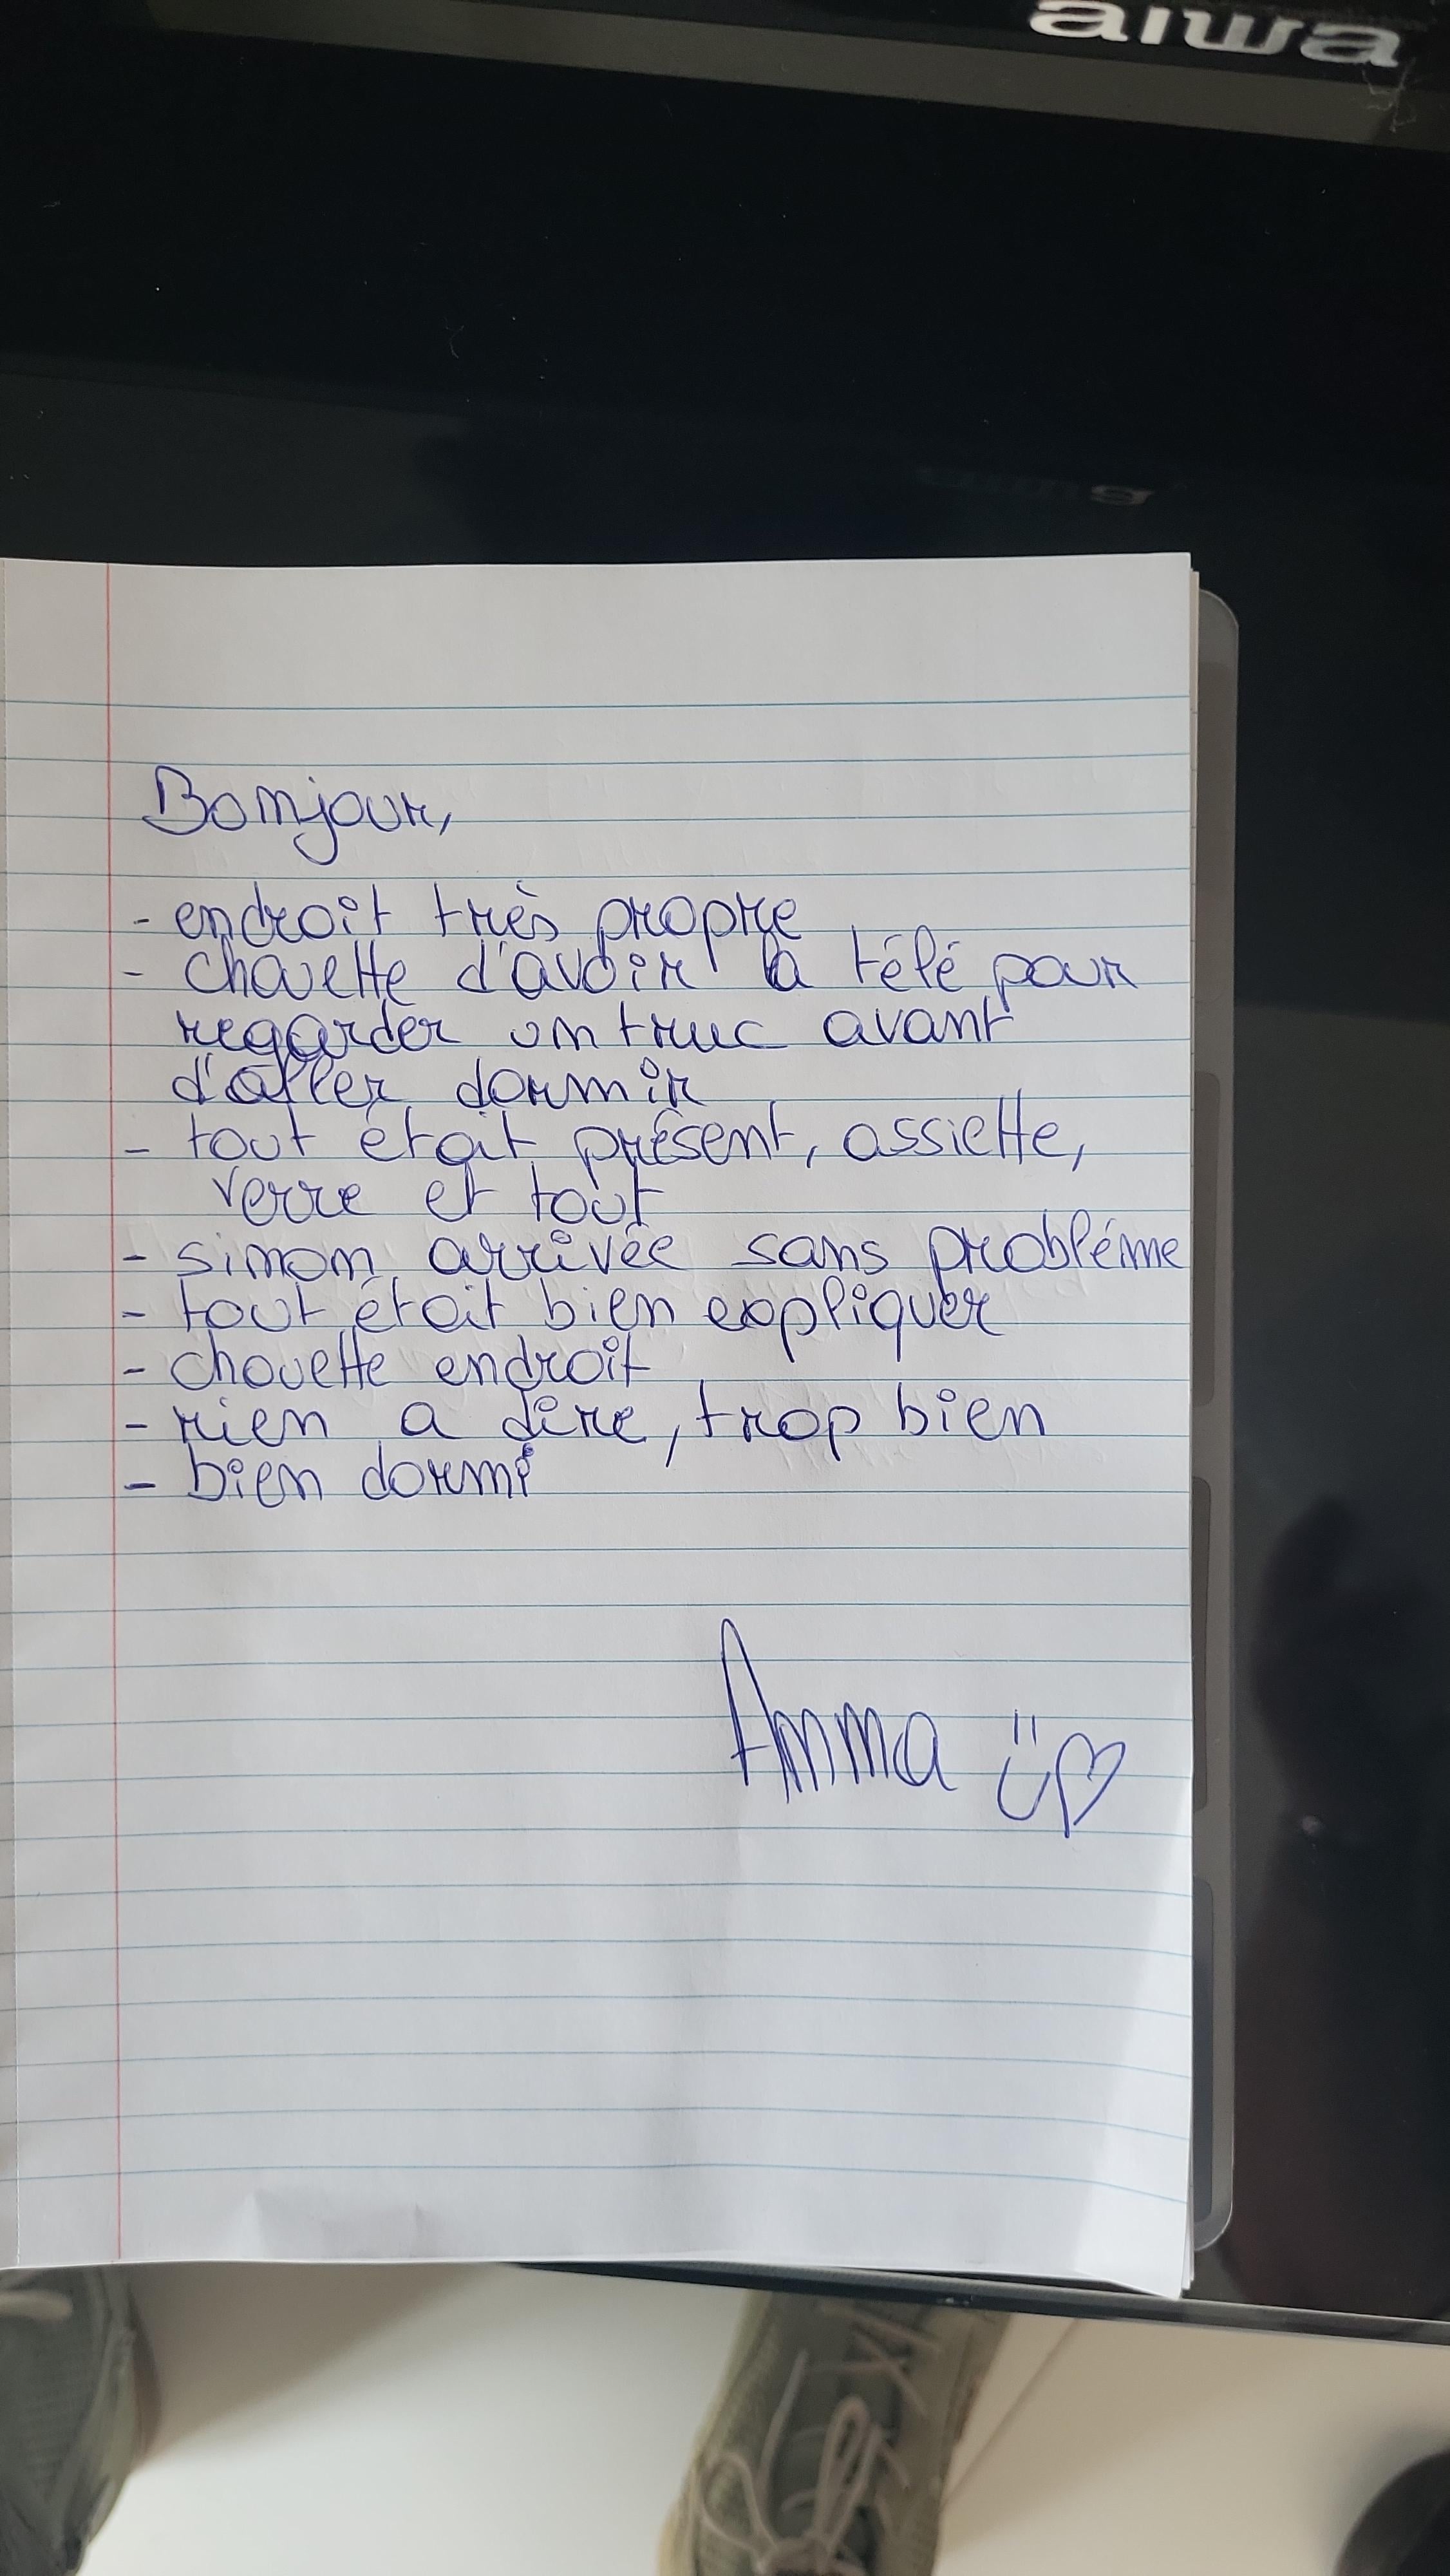 aiwa
Bonjour,
- endroit très propre
- chouette d'avoir la télé pour
regarder un truc avant
d'aller dormir
- tout était présent, assiette,
verre et tout
- simon arrivée sans probléme
- tout était bien expliquer
- chouette endroit
- rien a dire, trop bien
- bien dormi
Anma